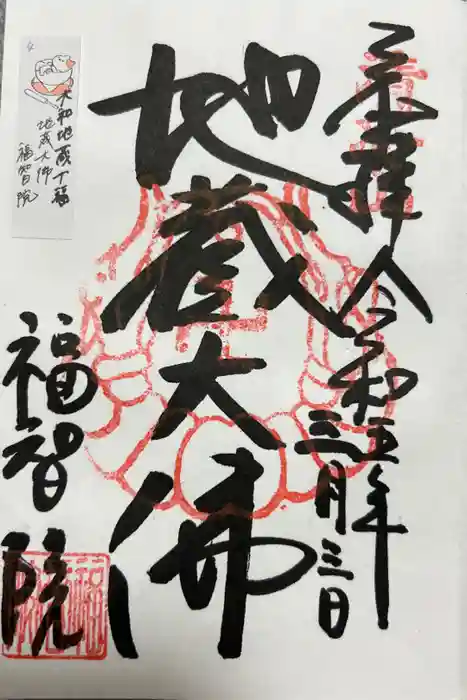 奉拝
令和五年
三月三日
地蔵大佛
福智院
大和地蔵十福
地蔵大佛
福智院